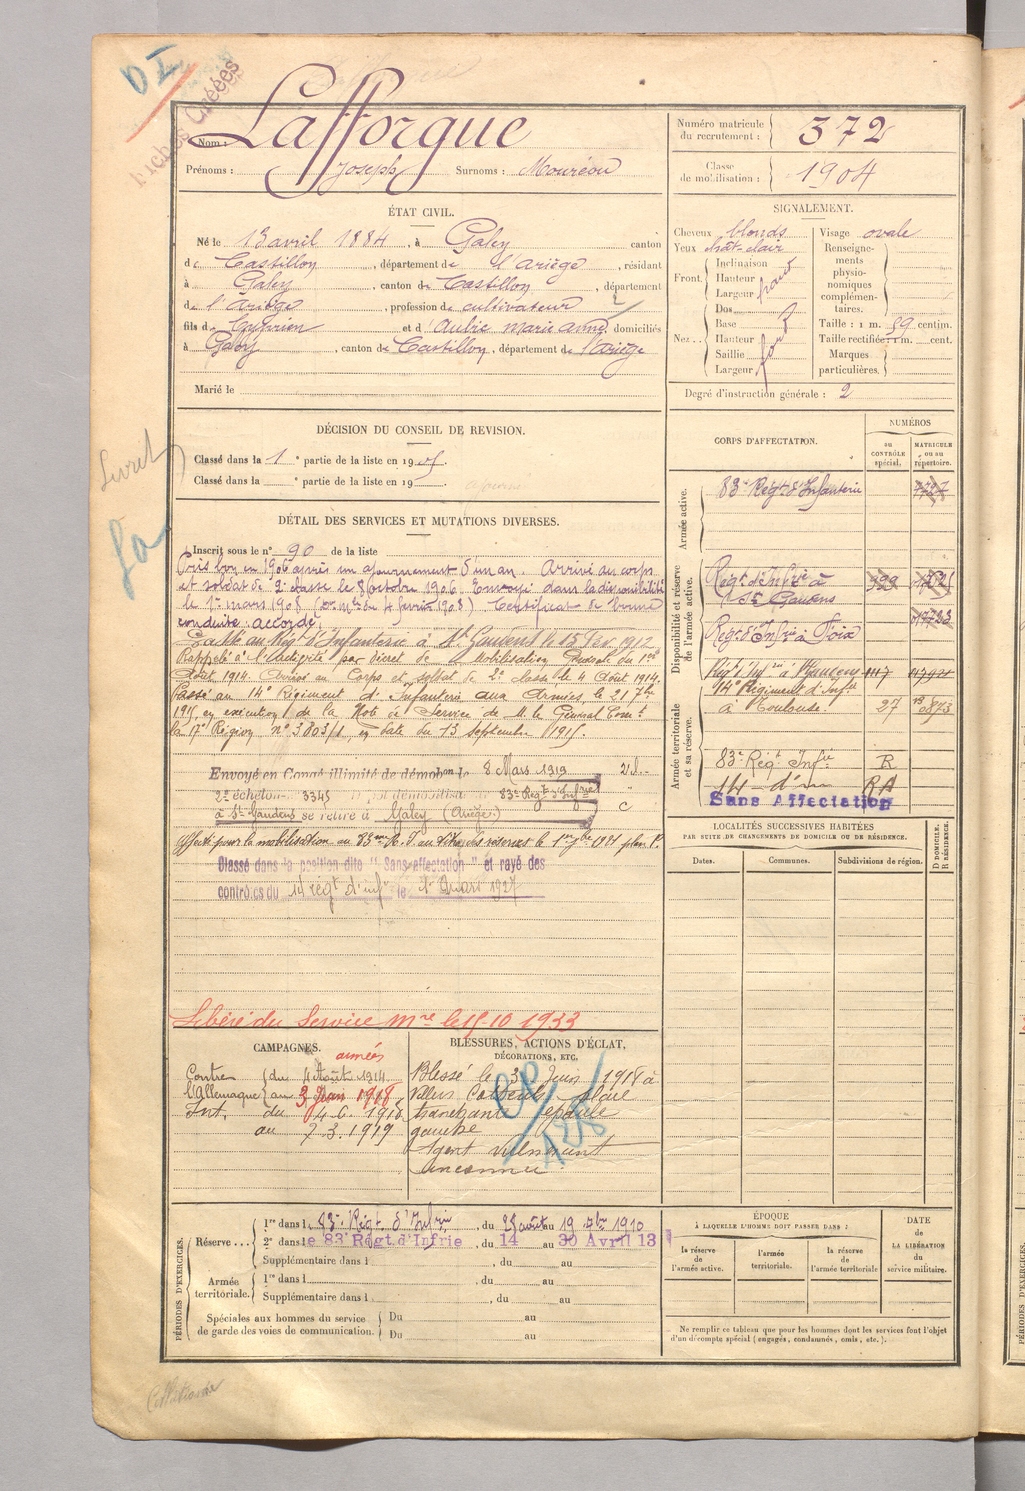 D I
Fiches Créées
Nom : Lafforgue
Prénoms : Joseph Surnoms : Mouréou
Numéro matricule du recrutement : 372
Classe de mobilisation : 1904
ÉTAT CIVIL.
Né le 13 avril 1884, à Galey canton
de Castillon, département de l'Ariège, résidant
à Galey, canton de Castillon, département
de l'Ariège, profession de cultivateur
fils de Cyprien et d'Aubic marie anne, domiciliés
à Galey, canton de Castillon, département de l'Ariège
Marié le
SIGNALEMENT.
Cheveux blonds
Yeux chât-clair
Front. Inclinaison
Hauteur
Largeur
Nez... Dos
Base
Hauteur
Saillie
Largeur
Visage ovale
Renseignements physionomiques complémentaires.
Taille : 1 m. 59 centim.
Taille rectifiée : 1 m. cent.
Marques particulières.
Degré d'instruction générale : 2
DÉCISION DU CONSEIL DE REVISION.
Classé dans la 1e partie de la liste en 1905.
Classé dans la e partie de la liste en 19
Livret
DÉTAIL DES SERVICES ET MUTATIONS DIVERSES.
Inscrit sous le n° 90 de la liste
Pris bon en 1906 après un ajournement d'un an. Arrivé au corps
et soldat de 2e classe le 8 octobre 1906. Envoyé dans la disponibilité
le 1er mars 1908 (on mlle du 4 février 1908) Certificat de bonne
conduite accordé.
Passé au Régt d'Infanterie à St Gaudens le 15 Fév 1912
Rappelé à l'activité par décret de Mobilisation Générale du 1er
Août 1914. Arrivé au Corps et soldat de 2e classe le 4 Août 1914.
Passé au 14e Régiment d'Infanterie aux Armées le 21 7bre
1915 en exécution de la Note de Service de M. le Général Comt
la 17e Région n° 3803/1, en date du 13 septembre 1915.
Envoyé en Congé illimité de démob 8 Mars 1919
2e échelon 3345 dépôt démobilisa 83e Régt d'Infrie
à St Gaudens se retire à Galey (Ariège)
Affecté pour la mobilisation au 83e R. I.
Classé dans la position dite "Sans affectation" et rayé des
contrôles du 14 régt d'inf le 1er Mars 1927
Libéré du Service mre le 15-10 1933
CORPS D'AFFECTATION.
NUMÉROS
au CONTRÔLE spécial.
MATRICULE ou au répertoire.
Armée active.
83e Régt d'Infanterie
Disponibilité et réserve de l'armée active.
Régt d'Infrie à
St Gaudens
Régt d'Infrie à Foix
Régt d'Infrie à St Gaudens 1117
Armée territoriale et sa réserve.
14e Régiment d'Infie
à Toulouse. 27
83e Régt Infie R
14 d° RA
Sans Affectation
LOCALITÉS SUCCESSIVES HABITÉES
PAR SUITE DE CHANGEMENTS DE DOMICILE OU DE RÉSIDENCE.
Dates. Communes. Subdivisions de région. D DOMICILE. R RÉSIDENCE.
CAMPAGNES.
armées
Contre l'Allemagne du 4 Août 1914
au 3 Juin 1918
Int. du 4.6.1918
au 7.3.1919
BLESSURES, ACTIONS D'ÉCLAT,
DÉCORATIONS, ETC.
Blessé le 3 Juin 1918 à
Villers Cotterêts plaie
tranchante épaule
gauche
Agent vulnérant
inconnu.
PÉRIODES D'EXERCICES.
Réserve... 1re dans le 83e Régt d'Infrie, du 25 août au 19 1910
2e dans le 83e Régt. d'Infrie, du 14 au 30 Avril 13
Supplémentaire dans l , du au
Armée territoriale. 1re dans l , du au
Supplémentaire dans l , du au
Spéciales aux hommes du service de garde des voies de communication. Du au
Du au
ÉPOQUE
À LAQUELLE L'HOMME DOIT PASSER DANS :
la réserve de l'armée active.
l'armée territoriale.
la réserve de l'armée territoriale
DATE
de
LA LIBÉRATION
du
service militaire.
Ne remplir ce tableau que pour les hommes dont les services font l'objet
d'un décompte spécial (engagés, condamnés, omis, etc.).